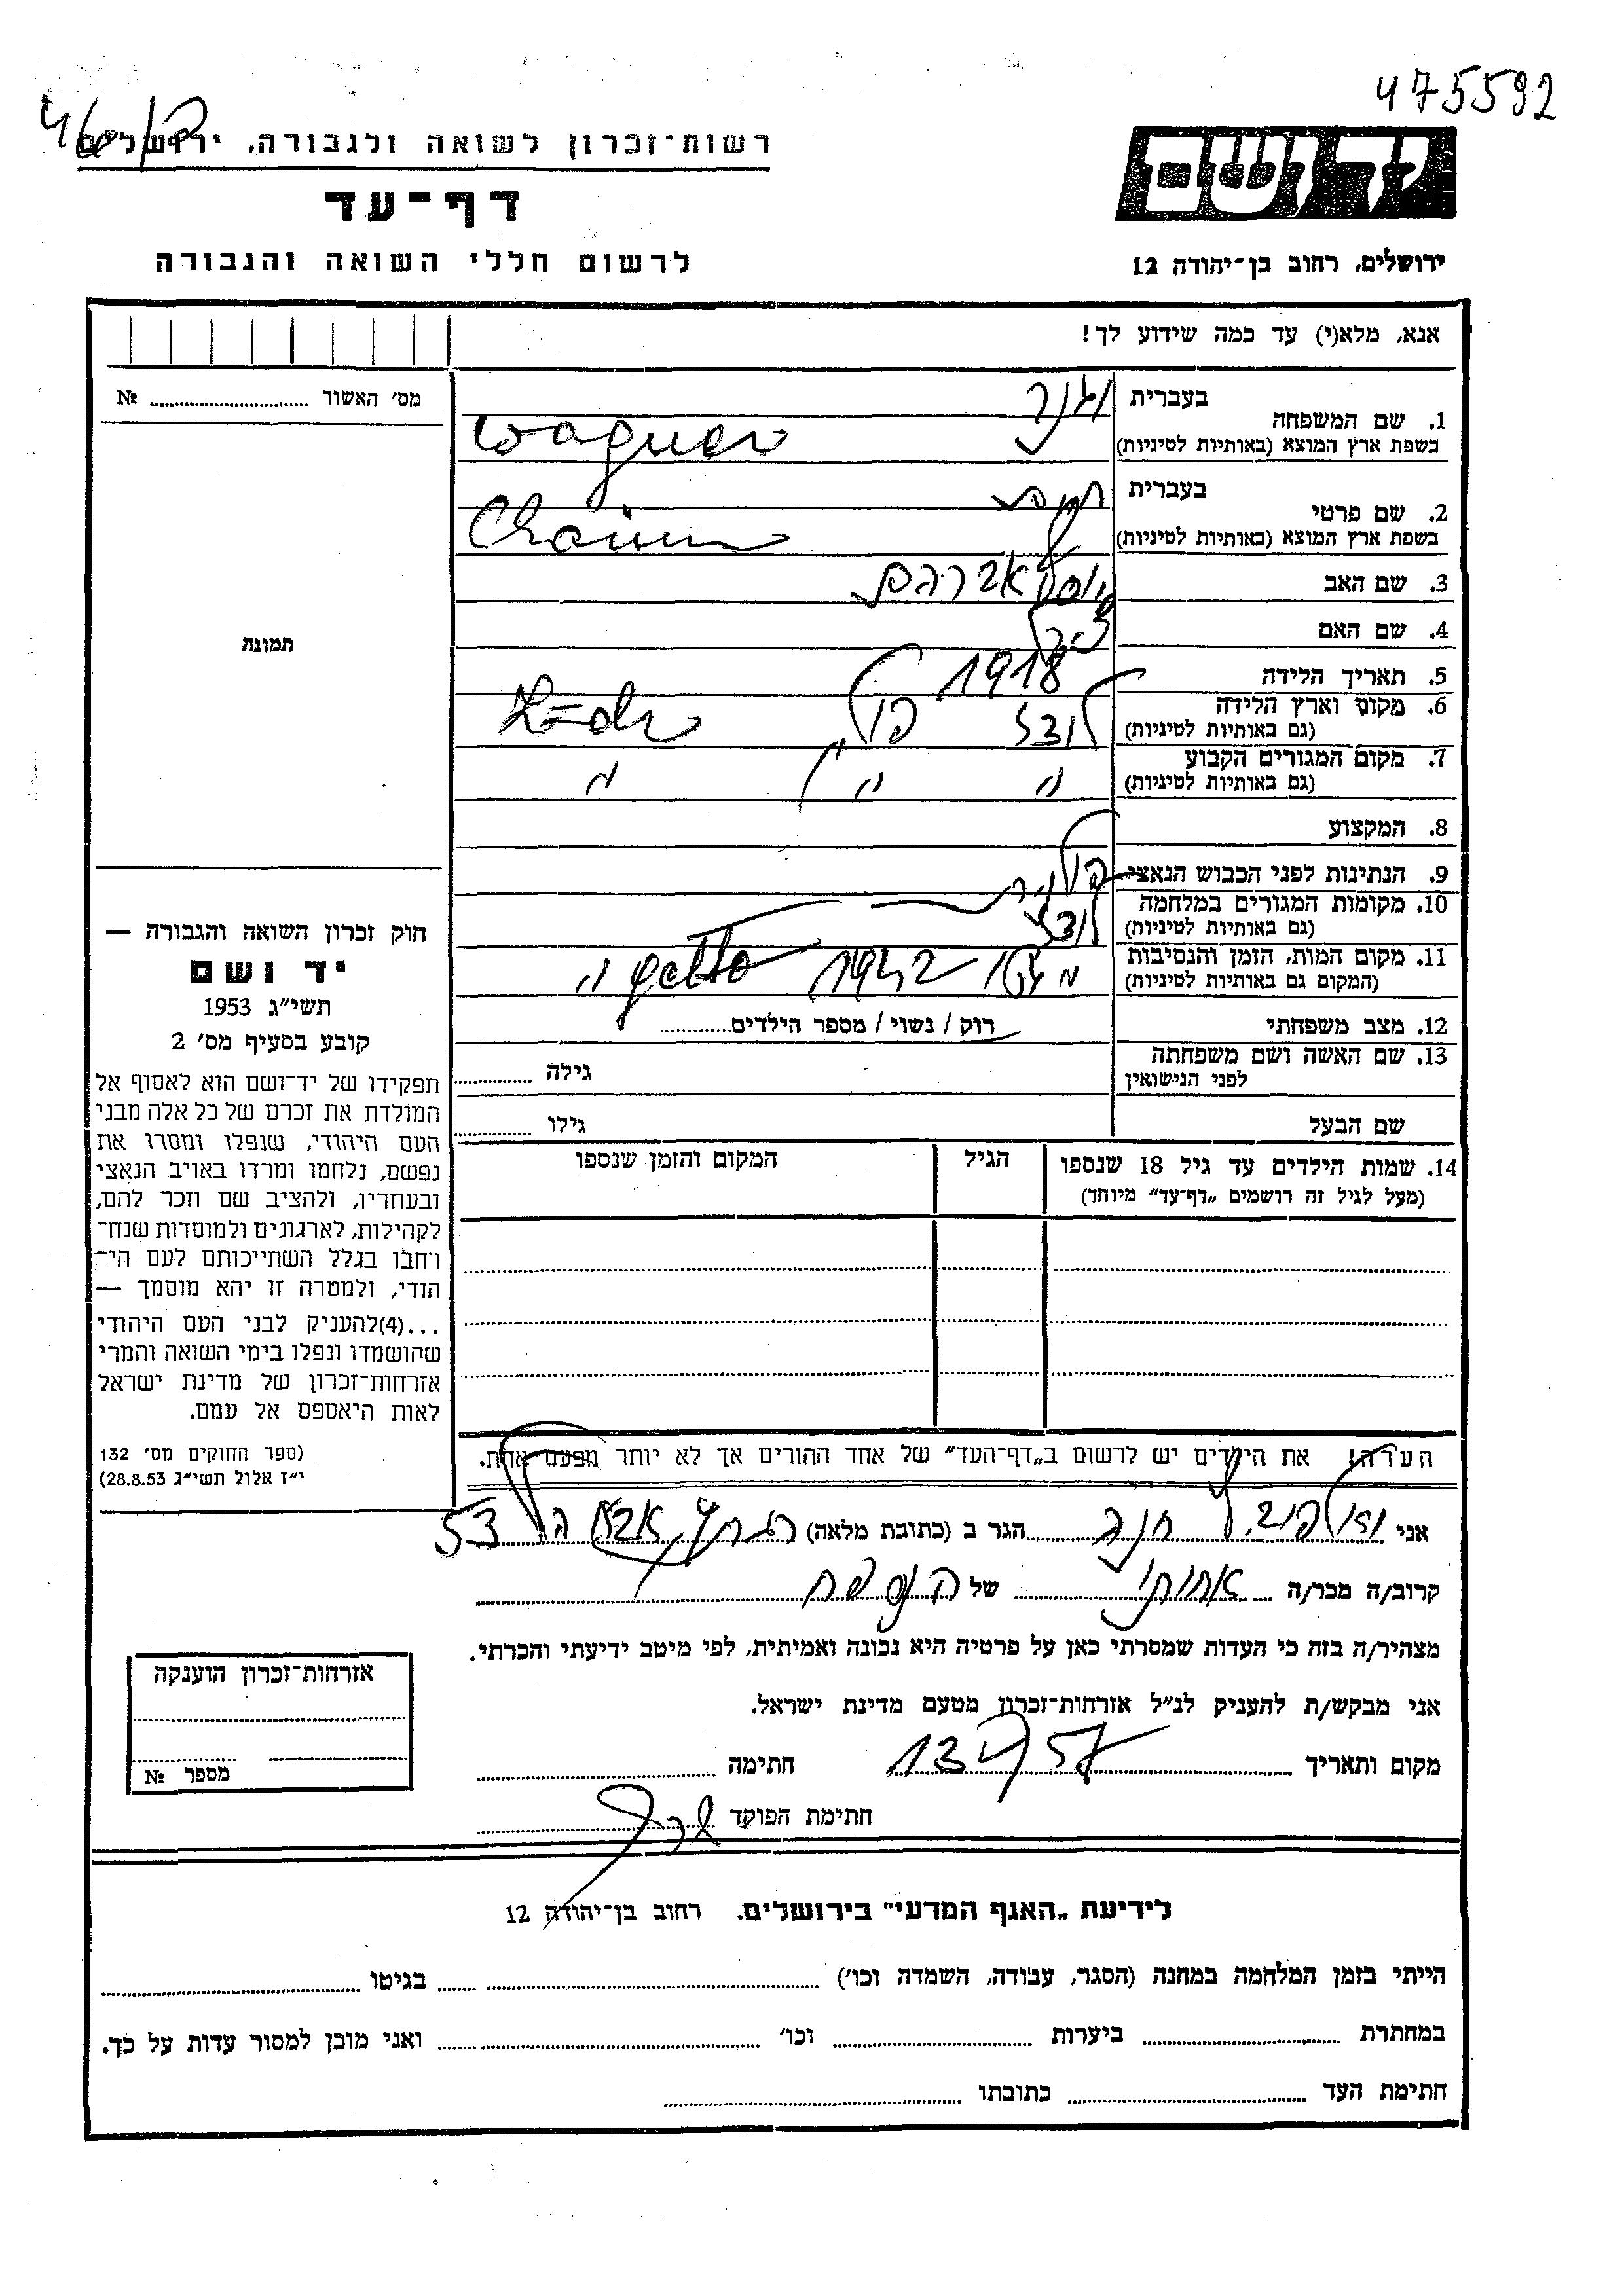 475592
460/
רשות-זכרון לשואה ולגבורה, ירושלים
דף-עד
לרשום חללי השואה והגבורה
יד ושם
ירושלים, רחוב בן-יהודה 12
אנא, מלא(י) עד כמה שידוע לך!
מס' האשור № 
1. שם המשפחה בעברית וגנר
בשפת ארץ המוצא (באותיות לטיניות) Wagner
2. שם פרטי בעברית חיים
בשפת ארץ המוצא (באותיות לטיניות) Chaim
3. שם האב יוסף אברהם
4. שם האם
5. תאריך הלידה 1918
6. מקום וארץ הלידה לודז פולין Lodz
(גם באותיות לטיניות)
7. מקום המגורים הקבוע
(גם באותיות לטיניות) " " "
8. המקצוע
9. הנתינות לפני הכבוש הנאצי פולנית
10. מקומות המגורים במלחמה לודז
(גם באותיות לטיניות)
11. מקום המות, הזמן והנסיבות 1942 ghetto
(המקום גם באותיות לטיניות)
12. מצב משפחתי רוק / נשוי / מספר הילדים
13. שם האשה ושם משפחתה גילה
לפני הנישואין
שם הבעל גילו
14. שמות הילדים עד גיל 18 שנספו הגיל המקום והזמן שנספו
(מעל לגיל זה רושמים „דף-עד" מיוחד)
הערה! את הילדים יש לרשום ב„דף-העד" של אחד ההורים אך לא יותר מפעם אחת.
תמונה
חוק זכרון השואה והגבורה —
יד ושם
תשי"ג 1953
קובע בסעיף מס' 2
תפקידו של יד-ושם הוא לאסוף אל
המולדת את זכרם של כל אלה מבני
העם היהודי, שנפלו ומסרו את
נפשם, נלחמו ומרדו באויב הנאצי
ובעוזריו, ולהציב שם וזכר להם,
לקהילות, לארגונים ולמוסדות שנח-
רחבו בגלל השתייכותם לעם הי-
הודי, ולמטרה זו יהא מוסמך —
...(4)להעניק לבני העם היהודי
שהושמדו ונפלו בימי השואה והמרי
אזרחות-זכרון של מדינת ישראל
לאות היאספם אל עמם.
(ספר החוקים מס' 132
י"ז אלול תשי"ג 28.8.53)
אני חנה הגר ב (כתובת מלאה) 53
קרוב/ה מכר/ה אחותי של הנספה
מצהיר/ה בזה כי העדות שמסרתי כאן על פרטיה היא נכונה ואמיתית, לפי מיטב ידיעתי והכרתי.
אני מבקש/ת להעניק לנ"ל אזרחות-זכרון מטעם מדינת ישראל.
מקום ותאריך 13 57 חתימה
חתימת הפוקד
אזרחות-זכרון הוענקה
מספר №
לידיעת „האגף המדעי" בירושלים. רחוב בן-יהודה 12
הייתי בזמן המלחמה במחנה (הסגר, עבודה, השמדה וכו') בגיטו
במחתרת ביערות וכו' ואני מוכן למסור עדות על כך.
חתימת העד כתובתו